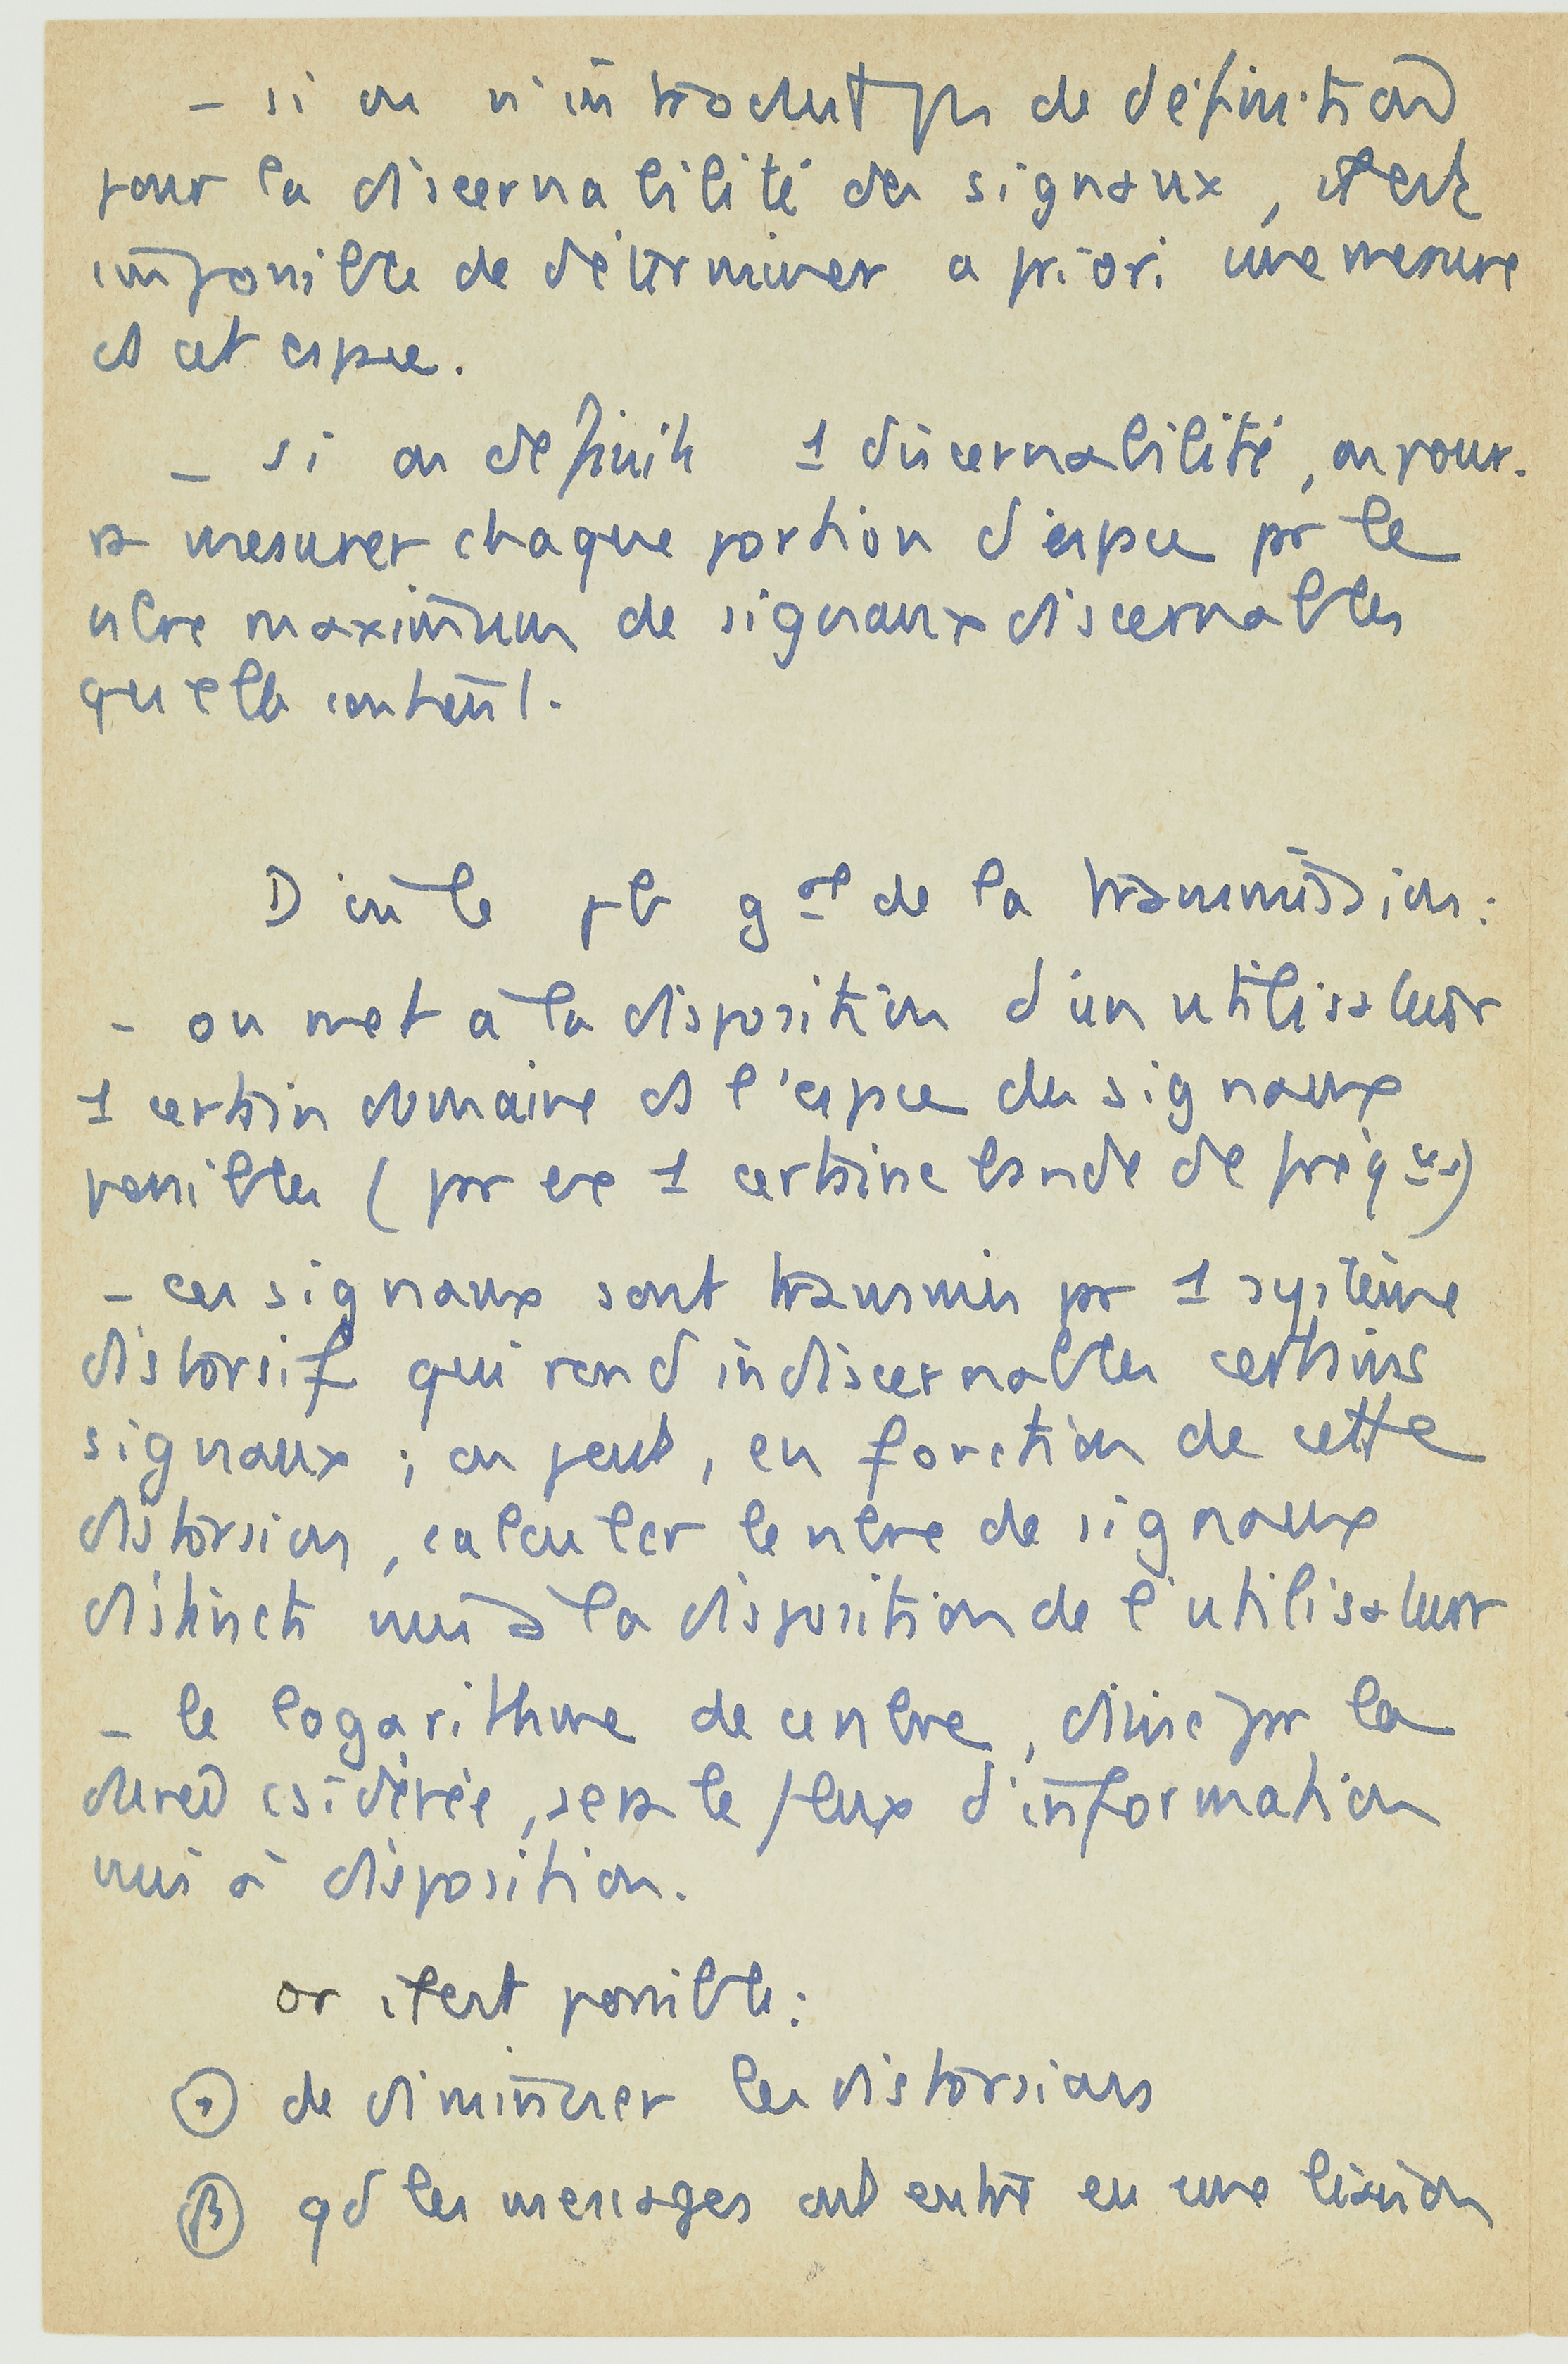 - si on n'introduit pas de définition
pour la discernabilité des signaux, il est
impossible de déterminer a priori une mesure
ds cet espace.
- si on définit 1 discernabilité, on pour-
ra mesurer chaque portion d'espace par le
nbre maximum de signaux discernables
qu'elle contient.
D'où le pb gal de la transmission :
- on met à la disposition d'un utilisateur
1 certain domaine ds l'espace des signaux
possibles (par ex 1 certaine bande de fréqces)
- ces signaux sont transmis par 1 système
distorsif qui rend indiscernables certains
signaux ; on peut, en fonction de cette
distorsion, calculer le nbre de signaux
distincts mis à la disposition de l'utilisateur
- le logarithme de ce nbre, divisé par la
durée csidérée, sera le flux d'information
mis à disposition.
or il est possible :
de diminuer les distorsions
β qd les messages ont entre eux une liaison